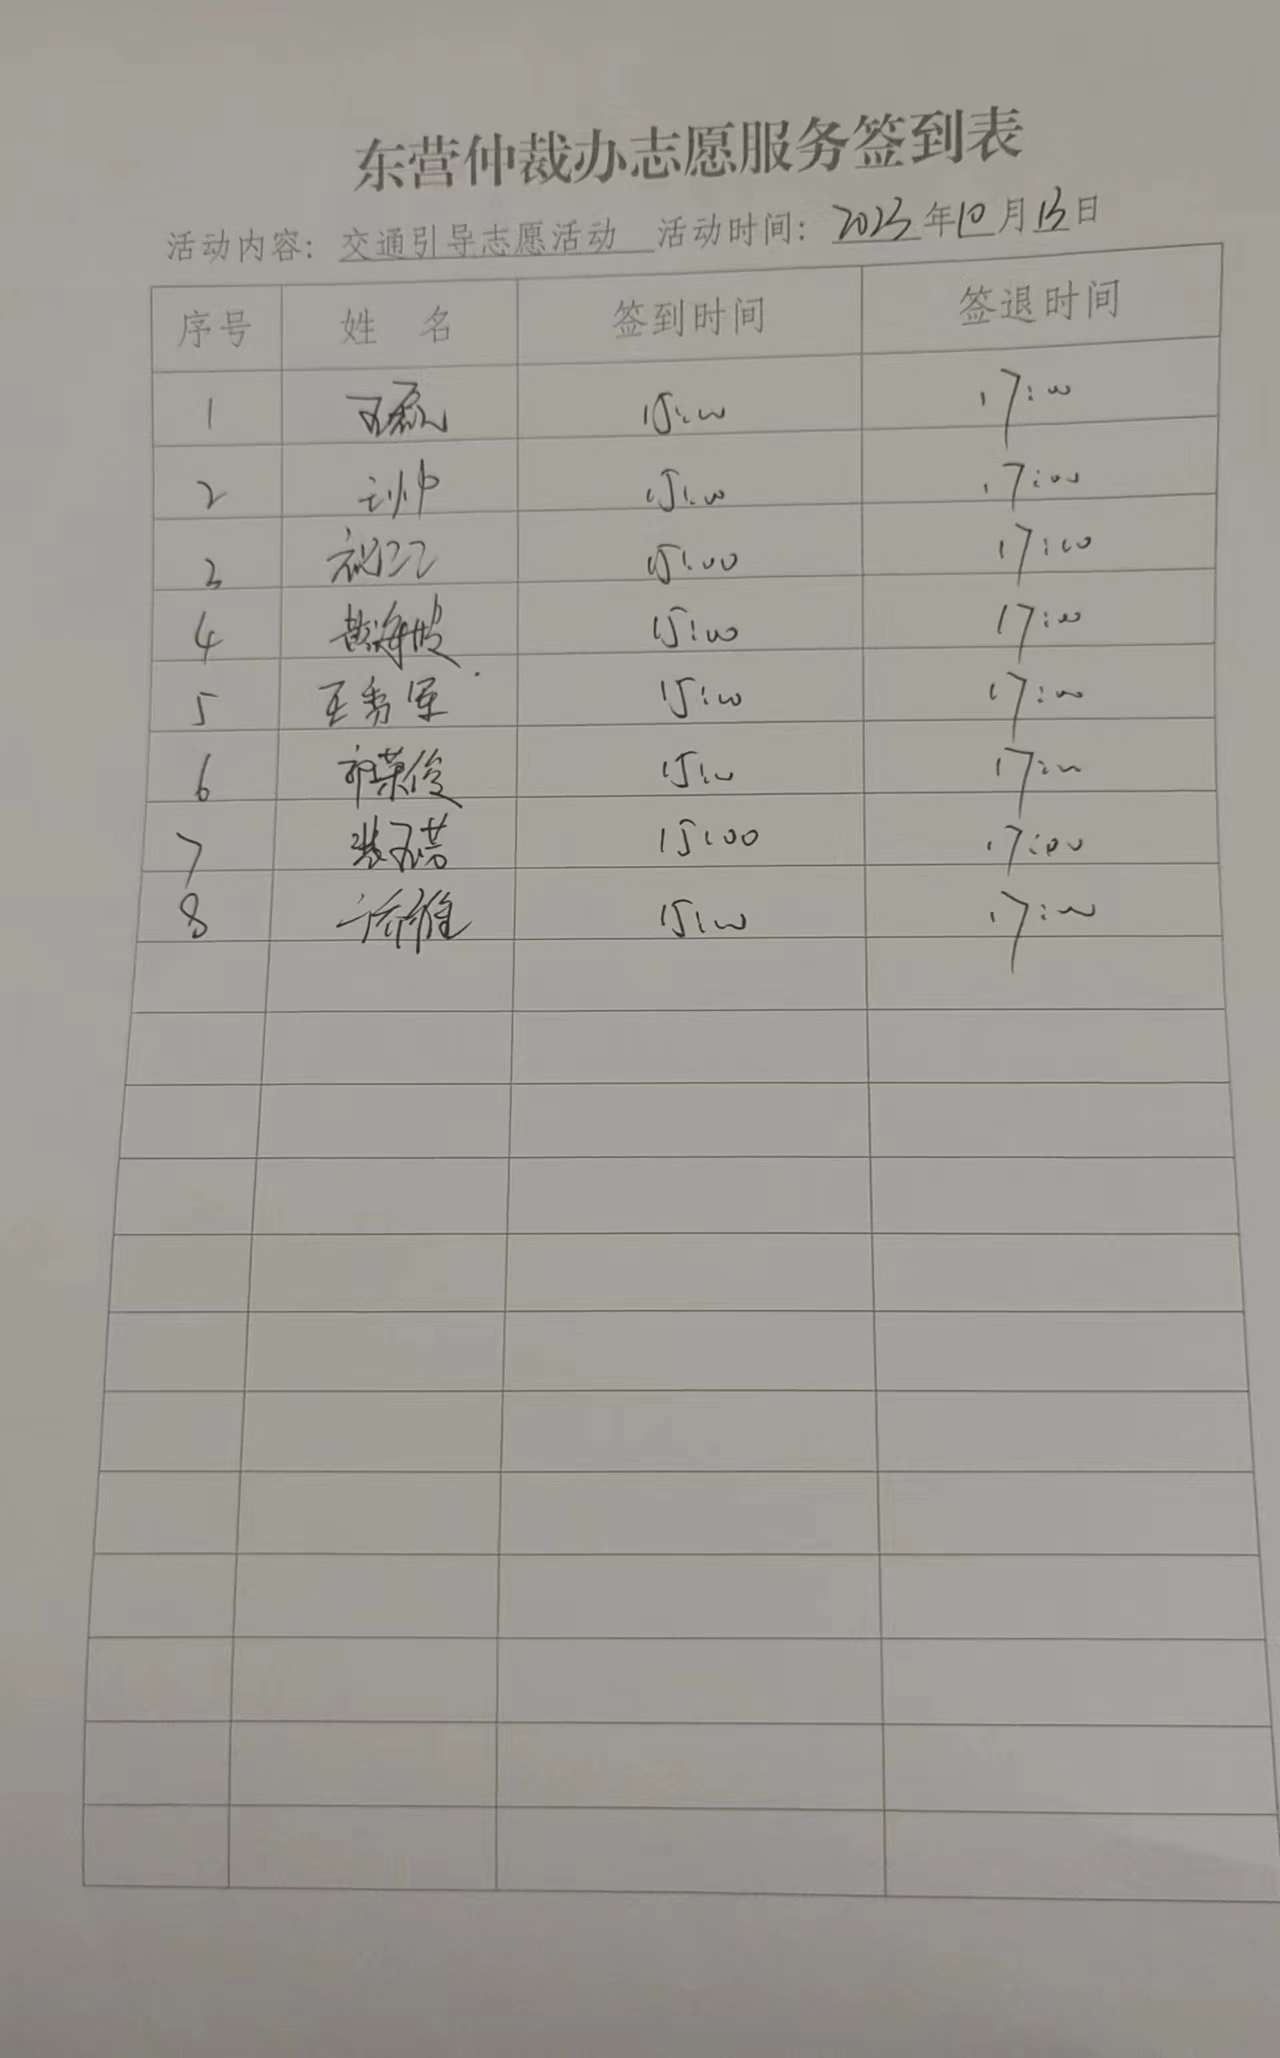 东营仲裁办志愿服务签到表
活动内容：交通引导志愿活动 活动时间：2023年10月13日
序号 姓 名 签到时间 签退时间
1 王磊 15:00 17:00
2 15:00 17:00
3 15:00 17:00
4 黄海波 15:00 17:00
5 王秀军 15:00 17:00
6 荣俊 15:00 17:00
7 15:00 17:00
8 15:00 17:00